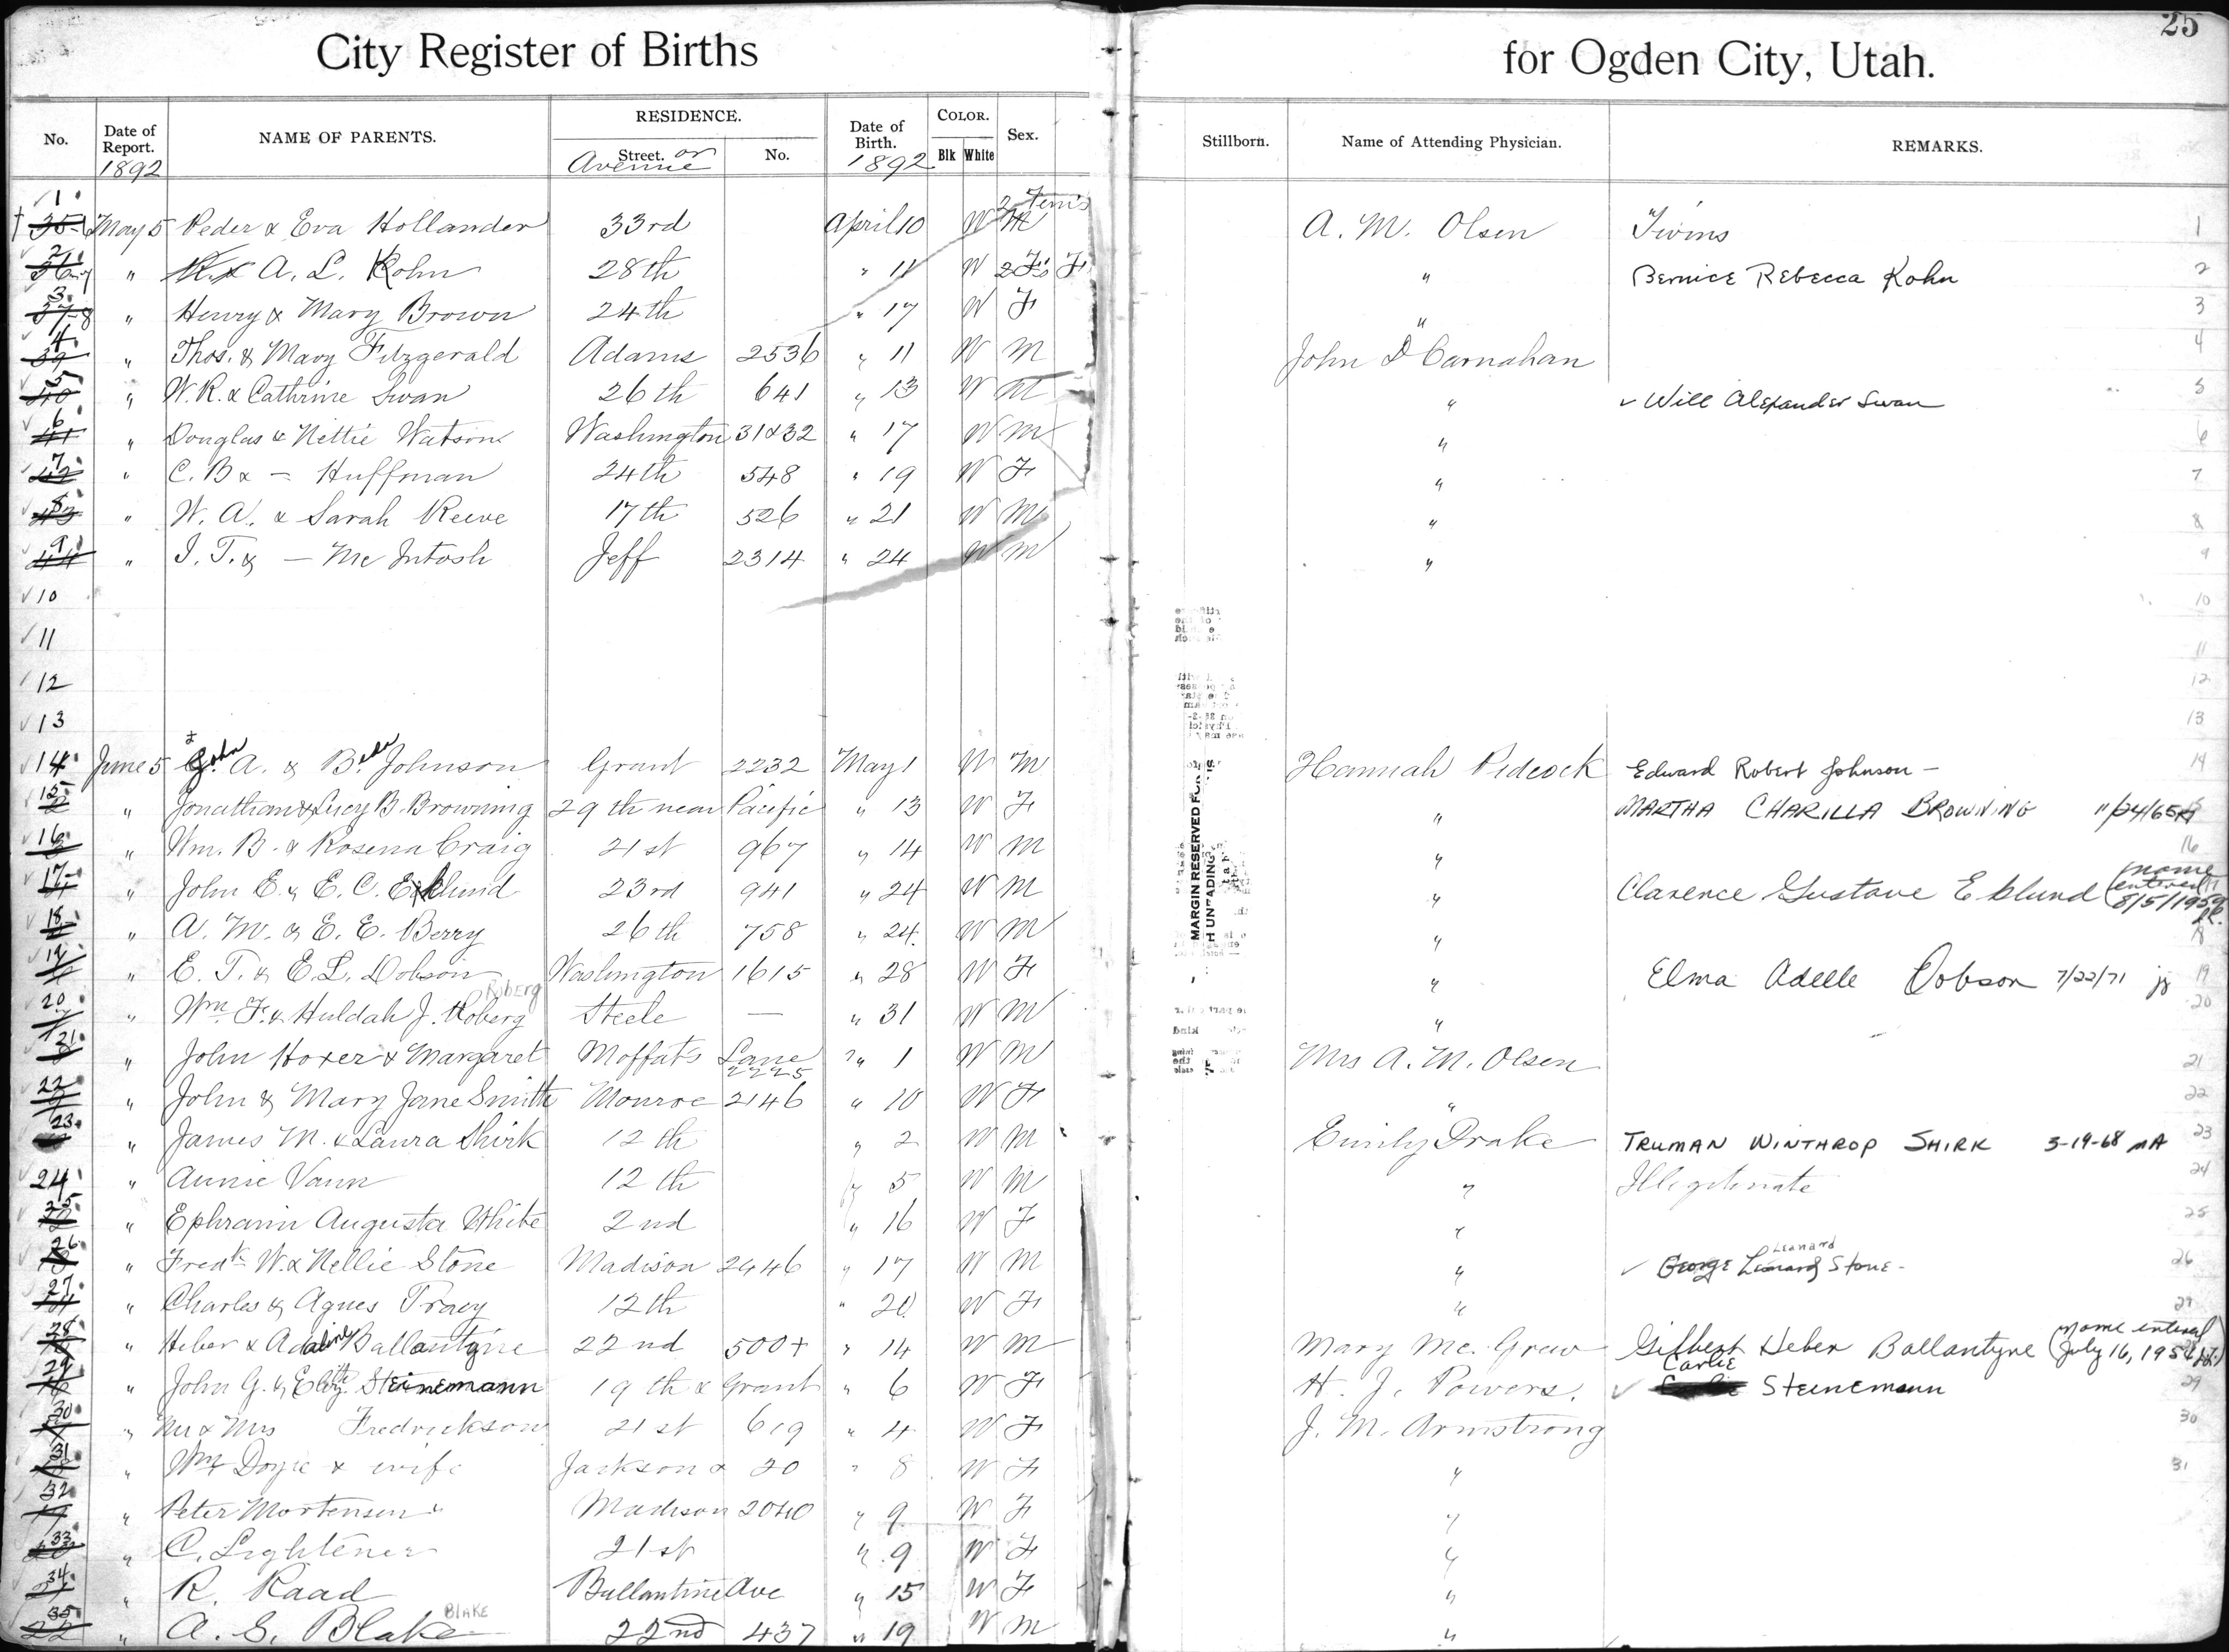 25
City Register of Births for Ogden City, Utah.
No. Date of Report. NAME OF PARENTS. RESIDENCE. Street. No. Date of Birth. COLOR. Blk White Sex. Stillborn. Name of Attending Physician. REMARKS.
1892 or Avenue 1892
1 May 5 Peder & Eva Hollander 33rd April 10 W M A. M. Olsen Twins 1
2 " A. L. Kohn 28th " 11 W 2 F's F " Bernice Rebecca Kohn 2
3 " Henry & Mary Brown 24th " 17 W F " 3
4 " Thos. & Mary Fitzgerald Adams 2536 " 11 W M John D Carnahan 4
5 " W. R. & Cathrine Swan 26th 641 " 13 W M " ✓ Will Alexander Swan 5
6 " Douglas & Nettie Watson Washington 31&32 " 17 W M " 6
7 " C. B & — Huffman 24th 548 " 19 W F " 7
8 " W. A. & Sarah Reeve 17th 526 " 21 W M " 8
9 " J. T. & — Mc Intosh Jeff 2314 " 24 W M " 9
10 10
11 11
12 12
13 13
14 June 5 John A. & B. Johnson Grant 2232 May 1 W M Hannah Pidcock Edward Robert Johnson — 14
15 " Jonathan & Lucy B. Browning 29th near Pacific " 13 W F " MARTHA CHARILLA BROWNING 11/24/65
16 " Wm. B. & Rosena Craig 21st 967 " 14 W M " 16
17 " John E. & E. C. Eklund 23rd 941 " 24 W M " Clarence Gustave Eklund (name entered 8/5/1959
18 " A. M. & E. E. Berry 26th 758 " 24 W M " 18
19 " E. T. & E. L. Dobson Washington 1615 " 28 W F " Elma Adelle Dobson 7/22/71 19
20 " Wm. F. & Huldah J. Roberg Roberg Steele — " 31 W M " 20
21 " John Hoxer & Margaret Moffats Lane 2225 " 1 W M Mrs A. M. Olsen 21
22 " John & Mary Jane Smith Monroe 2146 " 10 W F " 22
23 " James M. & Laura Shirk 12th " 2 W M Emily Drake TRUMAN WINTHROP SHIRK 3-19-68 23
24 " Annie Vann 12th " 5 W M " Illegitimate 24
25 " Ephraim Augusta White 2nd " 16 W F " 25
26 " Fredk W. & Nellie Stone Madison 2446 " 17 W M " ✓ George Leonard Leonard Stone — 26
27 " Charles & Agnes Tracy 12th " 20 W F "
28 " Heber & Adaline Ballantyne 22nd 500+ " 14 W M Mary Mc. Grew Gilbert Heber Ballantyne (Name entered July 16, 195
29 " John G. & Steinemann 19th & Grant " 6 W F H. J. Powers. ✓ Carlie Steinemann 29
30 " Mr & Mrs Fredrickson 21st 619 " 4 W F J. M. Armstrong 30
31 " Wm Doyle & wife Jackson & 20 " 8 W F " 31
32 " Peter Mortensen & Madison 2040 " 9 W F "
33 " C. Lightener 21st " 9 W F "
34 " R. Raad Ballantine Ave " 15 W F "
35 " A. S. Blake BLAKE 22nd 437 " 19 W M "
MARGIN RESERVED FOR